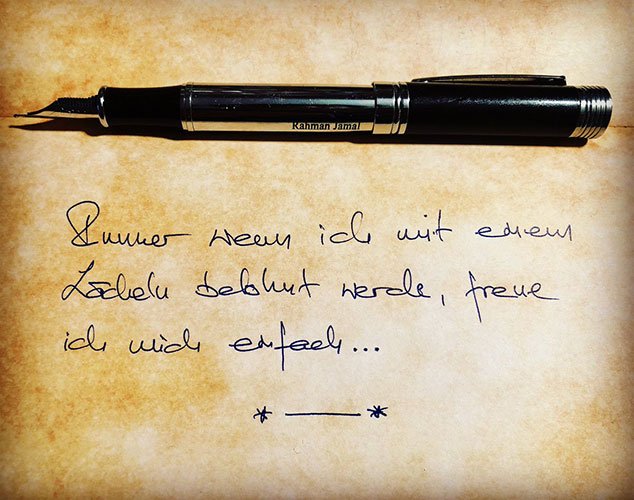 Rahman Jamal
Immer wenn ich mit einem
Lächeln belohnt werde, freue
ich mich einfach...
* — *